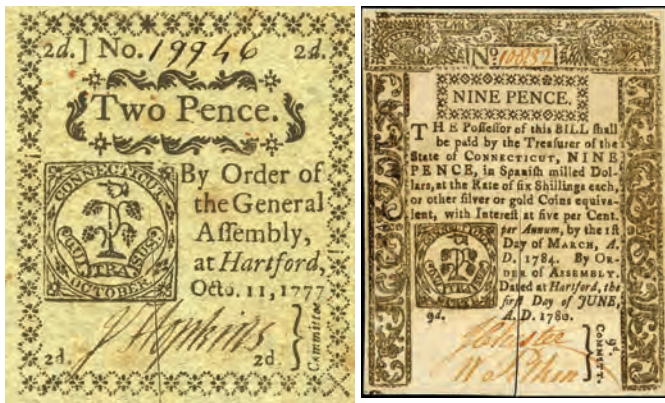 2d.] No. 19946 2d.
Two Pence.
CONNECTICUT
OCTOBER
By Order of
the General
Assembly,
at Hartford,
Octo. 11, 1777
J Hopkins
2d. 2d. } Committee
No 10832
NINE PENCE.
THE Possessor of this BILL shall
be paid by the Treasurer of the
State of CONNECTICUT, NINE
PENCE, in Spanish milled Dol-
lars, at the Rate of six Shillings each,
or other silver or gold Coins equiva-
lent, with Interest at five per Cent.
per Annum, by the 1st
Day of MARCH, A.
D. 1784. By OR-
DER of ASSEMBLY.
Dated at Hartford, the
first Day of JUNE,
9d. A. D. 1780.
9d. } COMMTT.